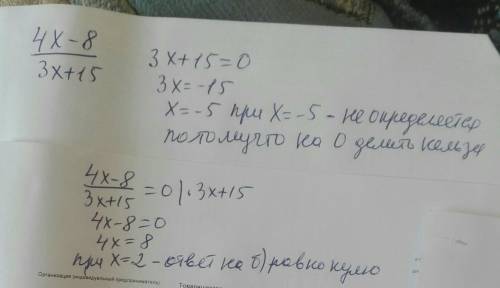 4x-8
3x+15
3x+15=0
3x=-15
x=-5 при x=-5 - не определяется
потомучто на 0 делить нельзя
4x-8
3x+15 =0 | · 3x+15
4x-8=0
4x=8
при x=2 - ответ на б) равно нулю
Организация (индивидуальный предприниматель)